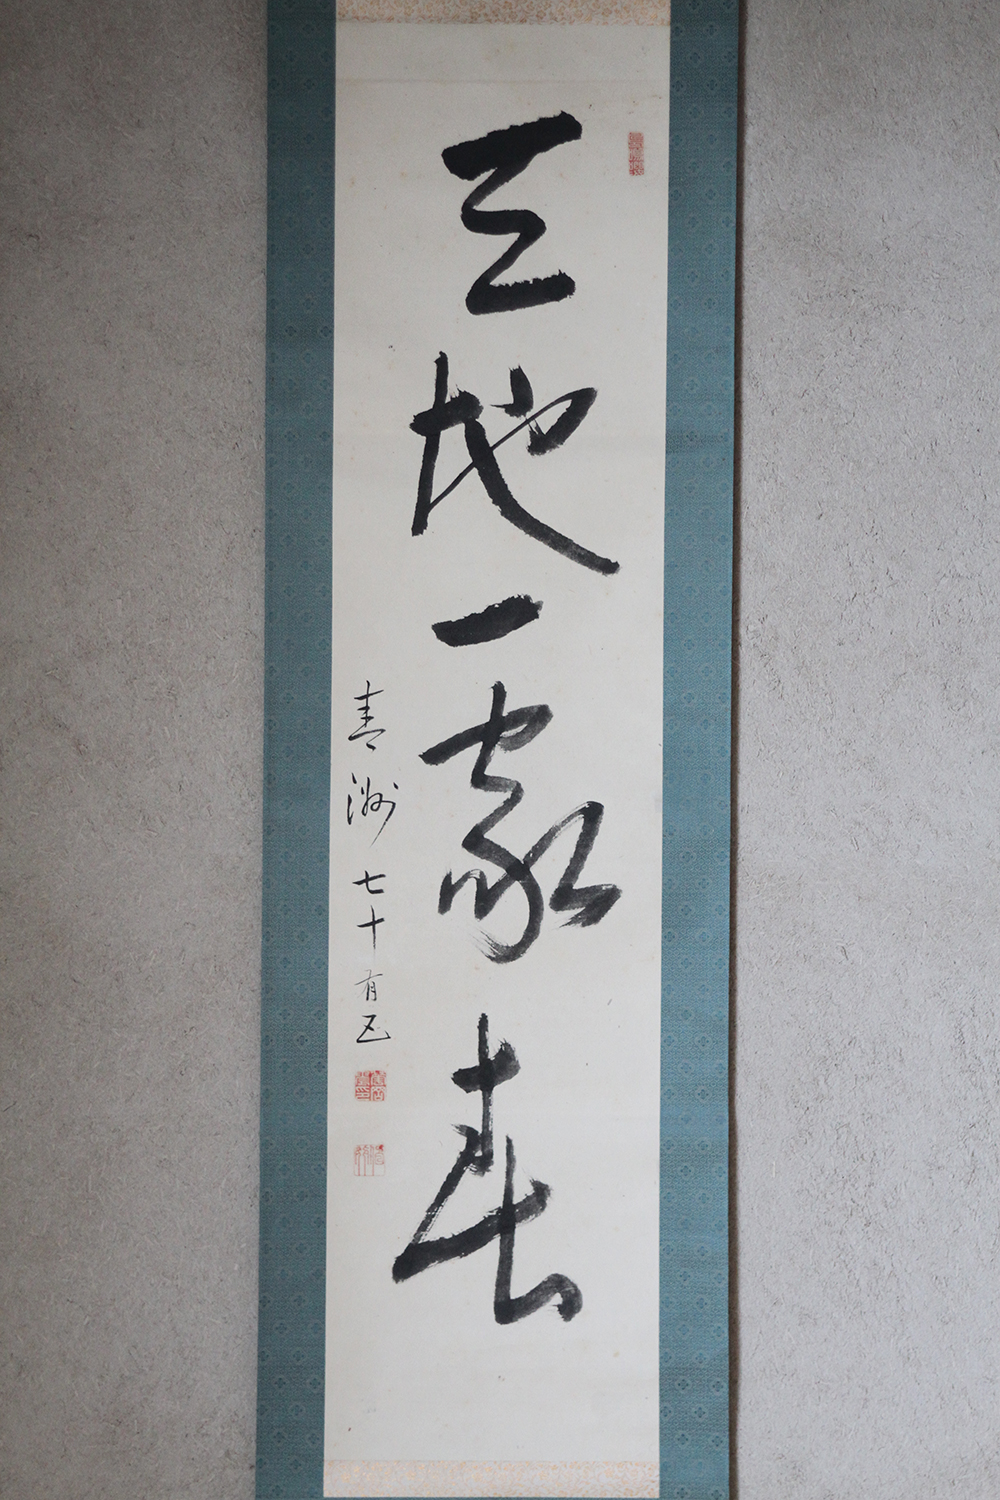 天地一家春
青 七十有五